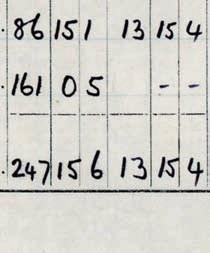 .86 15 1 13 15 4
.161 0 5 - -
.247 15 6 13 15 4